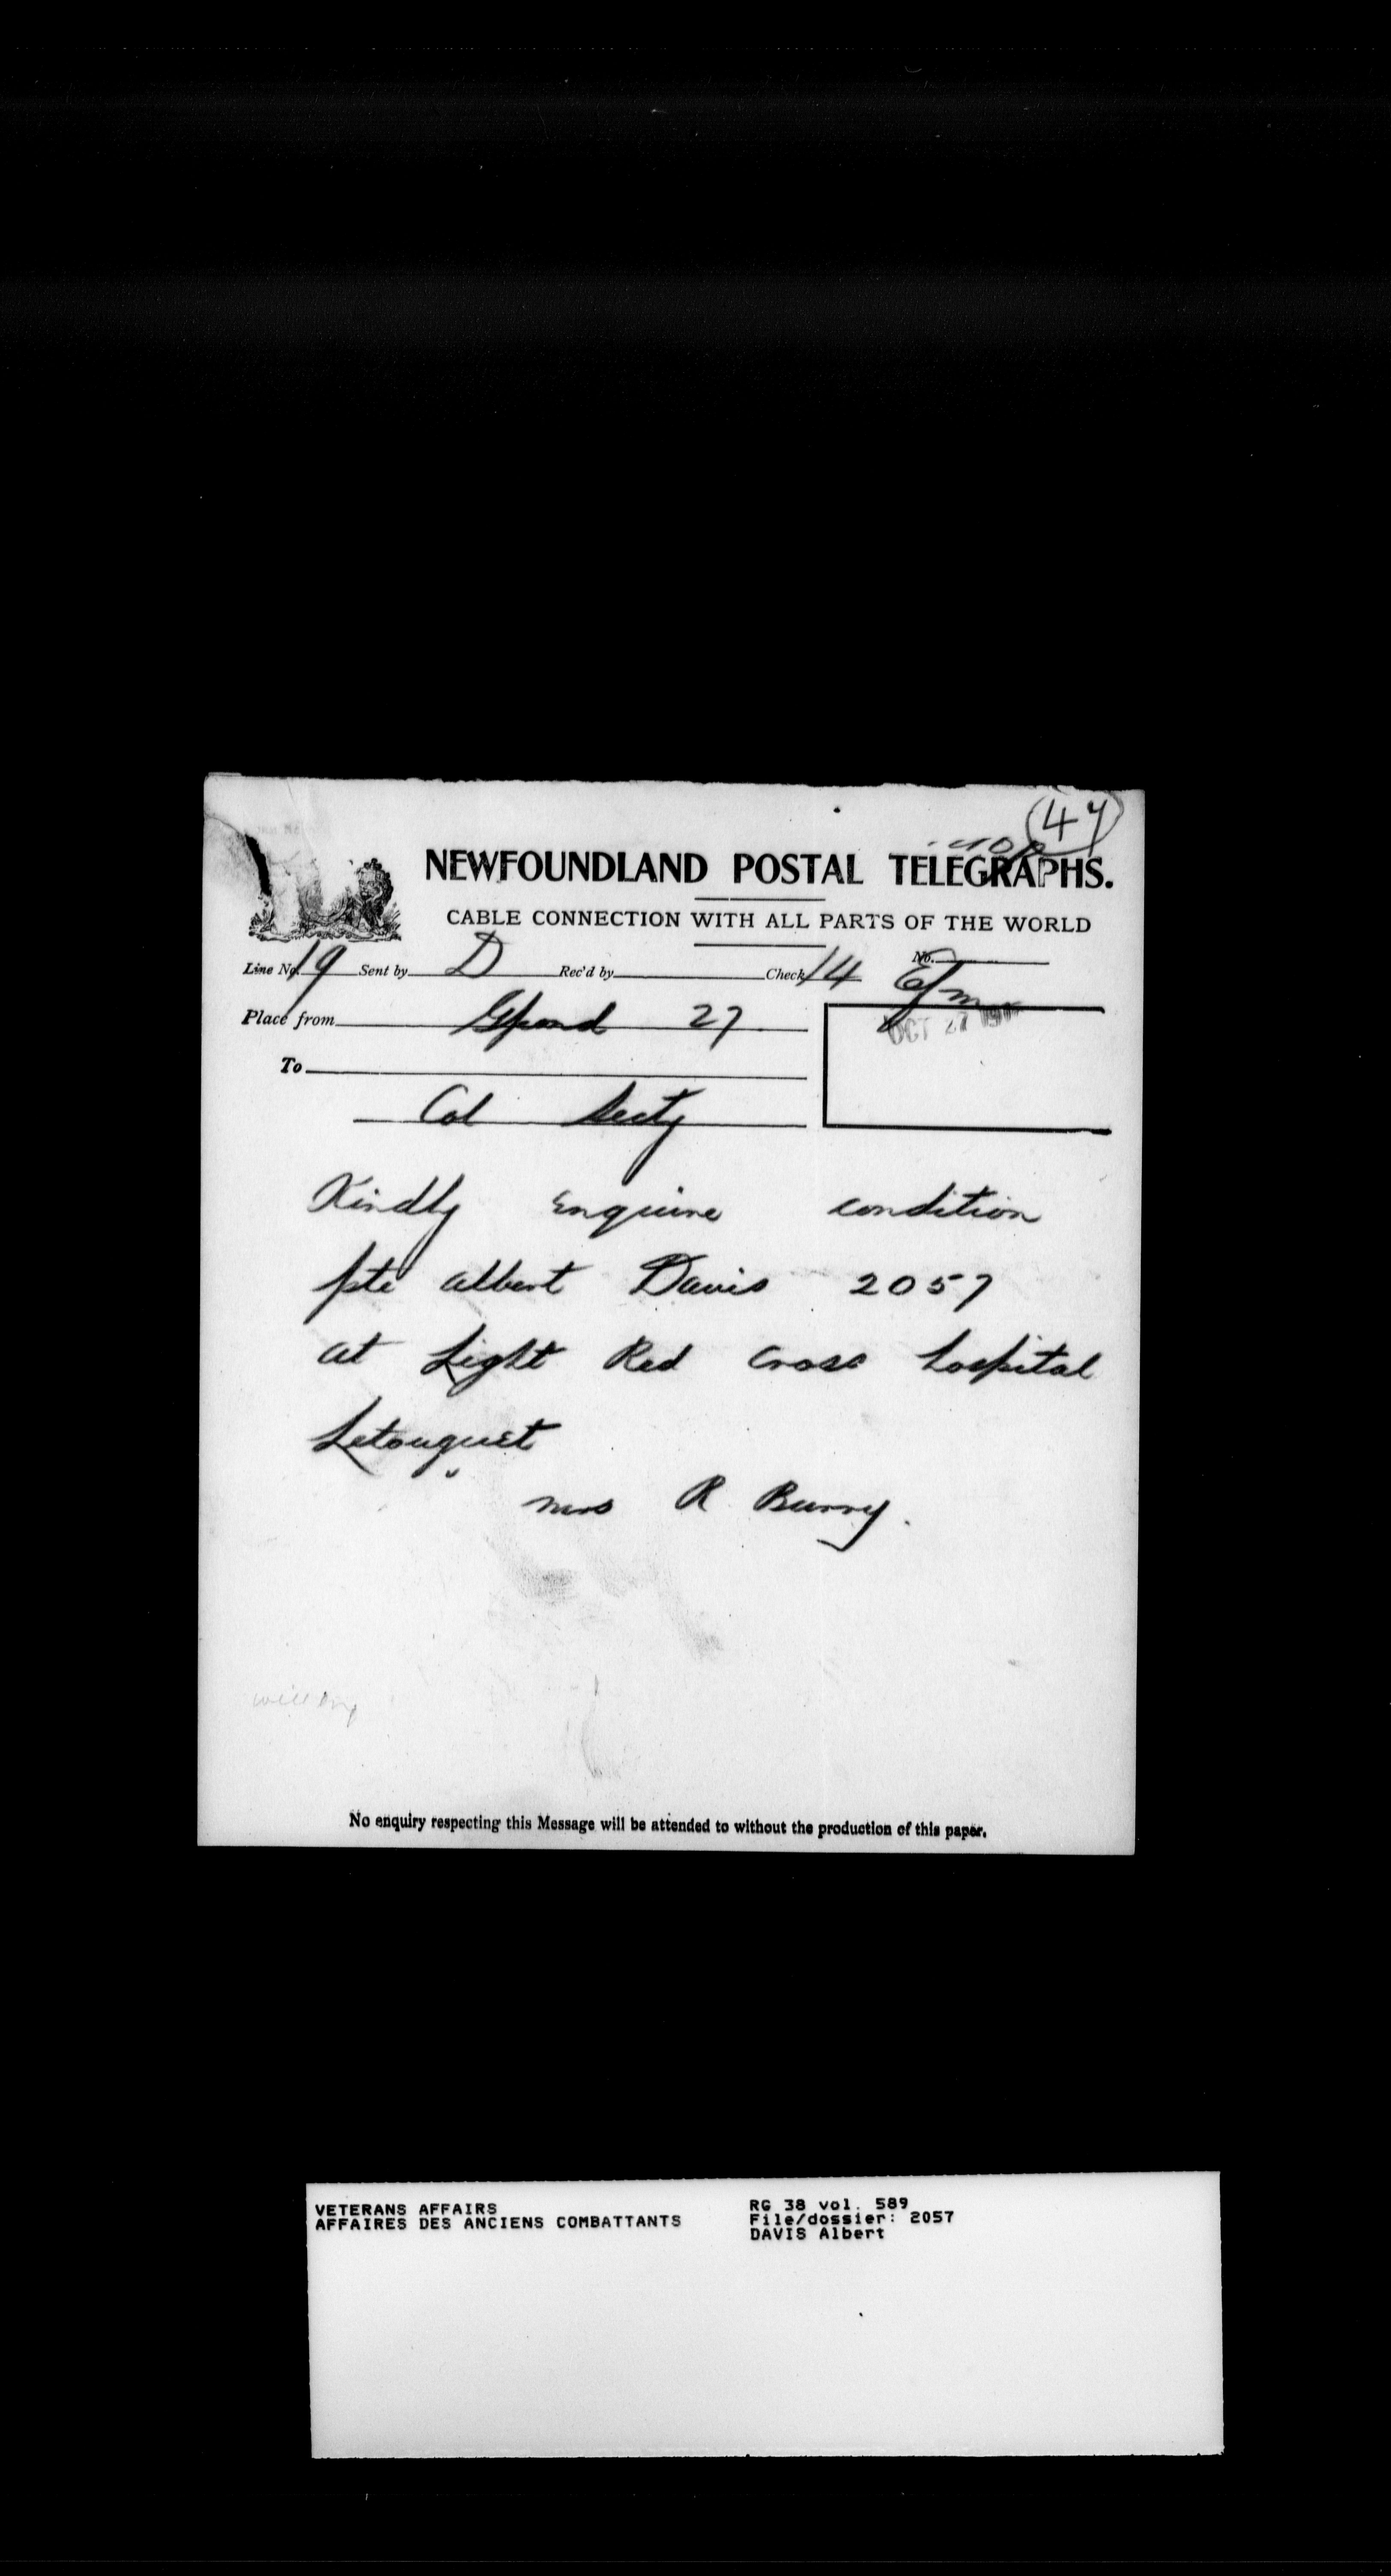 47
NEWFOUNDLAND POSTAL TELEGRAPHS.
CABLE CONNECTION WITH ALL PARTS OF THE WORLD
Line No. 19 Sent by D Rec'd by Check 14 No.
Place from Gpond 27
OCT 27
To
Col Secty
Kindly Enquire condition
pte albert Davis 2057
at Light Red Cross hospital
Letouquet
mrs R Burry.
No enquiry respecting this Message will be attended to without the production of this paper.
VETERANS AFFAIRS RG 38 vol. 589
AFFAIRES DES ANCIENS COMBATTANTS File/dossier: 2057
DAVIS Albert